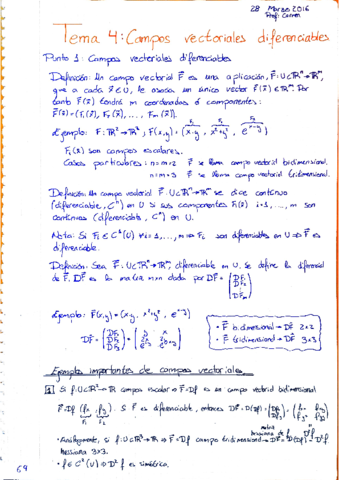 28 Marzo 2016
Prof: Carmen
Tema 4: Campos vectoriales diferenciables
Punto 1: Campos vectoriales diferenciables
Definición: Un campo vectorial F⃗ es una aplicación, F⃗: U⊂ℝⁿ→ℝᵐ,
que a cada x⃗∈U, le asocia un único vector F⃗(x⃗)∈ℝᵐ. Por
tanto F⃗(x⃗) tendrá m coordenadas o componentes:
F⃗(x⃗)=(F₁(x⃗), F₂(x⃗), ..., Fₘ(x⃗)).
Ejemplo: F: ℝ²→ℝ³, F(x,y) = (x·y, x²+y², e^(x-y))
Fᵢ(x⃗) son campos escalares.
Casos particulares: n=m=2 F⃗ se llama campo vectorial bidimensional.
n=m=3 F⃗ se llama campo vectorial tridimensional.
Definición: Un campo vectorial F⃗: U⊂ℝⁿ→ℝᵐ se dice continuo
(diferenciable, C¹) en U si sus componentes Fᵢ(x⃗) i=1, ..., m son
continuas (diferenciable, C¹) en U.
Nota: Si Fᵢ ∈ C¹(U) ∀i=1, ..., m ⇒ Fᵢ son diferenciables en U ⇒ F⃗ es
diferenciable.
Definición: Sea F⃗: U⊂ℝⁿ→ℝᵐ, diferenciable en U, se define la diferencial
de F⃗, DF⃗ es la matriz m×n dada por DF⃗ = (DF₁ DF₂ ⋮ DFₘ)
Ejemplo: F(x,y) = (x·y, x²+y², e^(x-y))
DF⃗ = (DF₁ DF₂ DF₃) =
• F⃗ bidimensional → DF⃗ 2×2
• F⃗ tridimensional → DF⃗ 3×3
Ejemplos importantes de campos vectoriales
1 Si f: U⊂ℝ²→ℝ campo escalar ⇒ F⃗=Df es un campo vectorial bidimensional
F⃗=Df (fx, fy). Si F⃗ es diferenciable, entonces DF⃗ = D(Df) =
matriz
hessiana de f
• Análogamente, si f: U⊂ℝ³→ℝ ⇒ F⃗=Df campo tridimensional → DF⃗=D(Df)=D²f
hessiana 3×3.
• f∈C²(U) ⇒ D²f es simétrica.